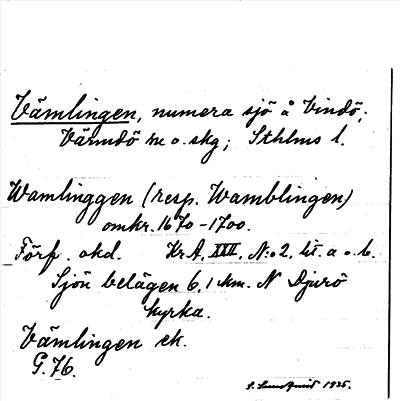 Vämlingen, numera sjö å Vindö,
Värmdö sn o. skg; Sthlms l.
Wamlinggen (resp. Wamblingen)
omkr. 1670-1700.
Förf. okd. KrA, XXII, N:o 2, lit. a o. b.
Sjön belägen 6,1 km. N Djurö
kyrka.
Vämlingen ek.
G. 76.
S. Lundqvist 1925.